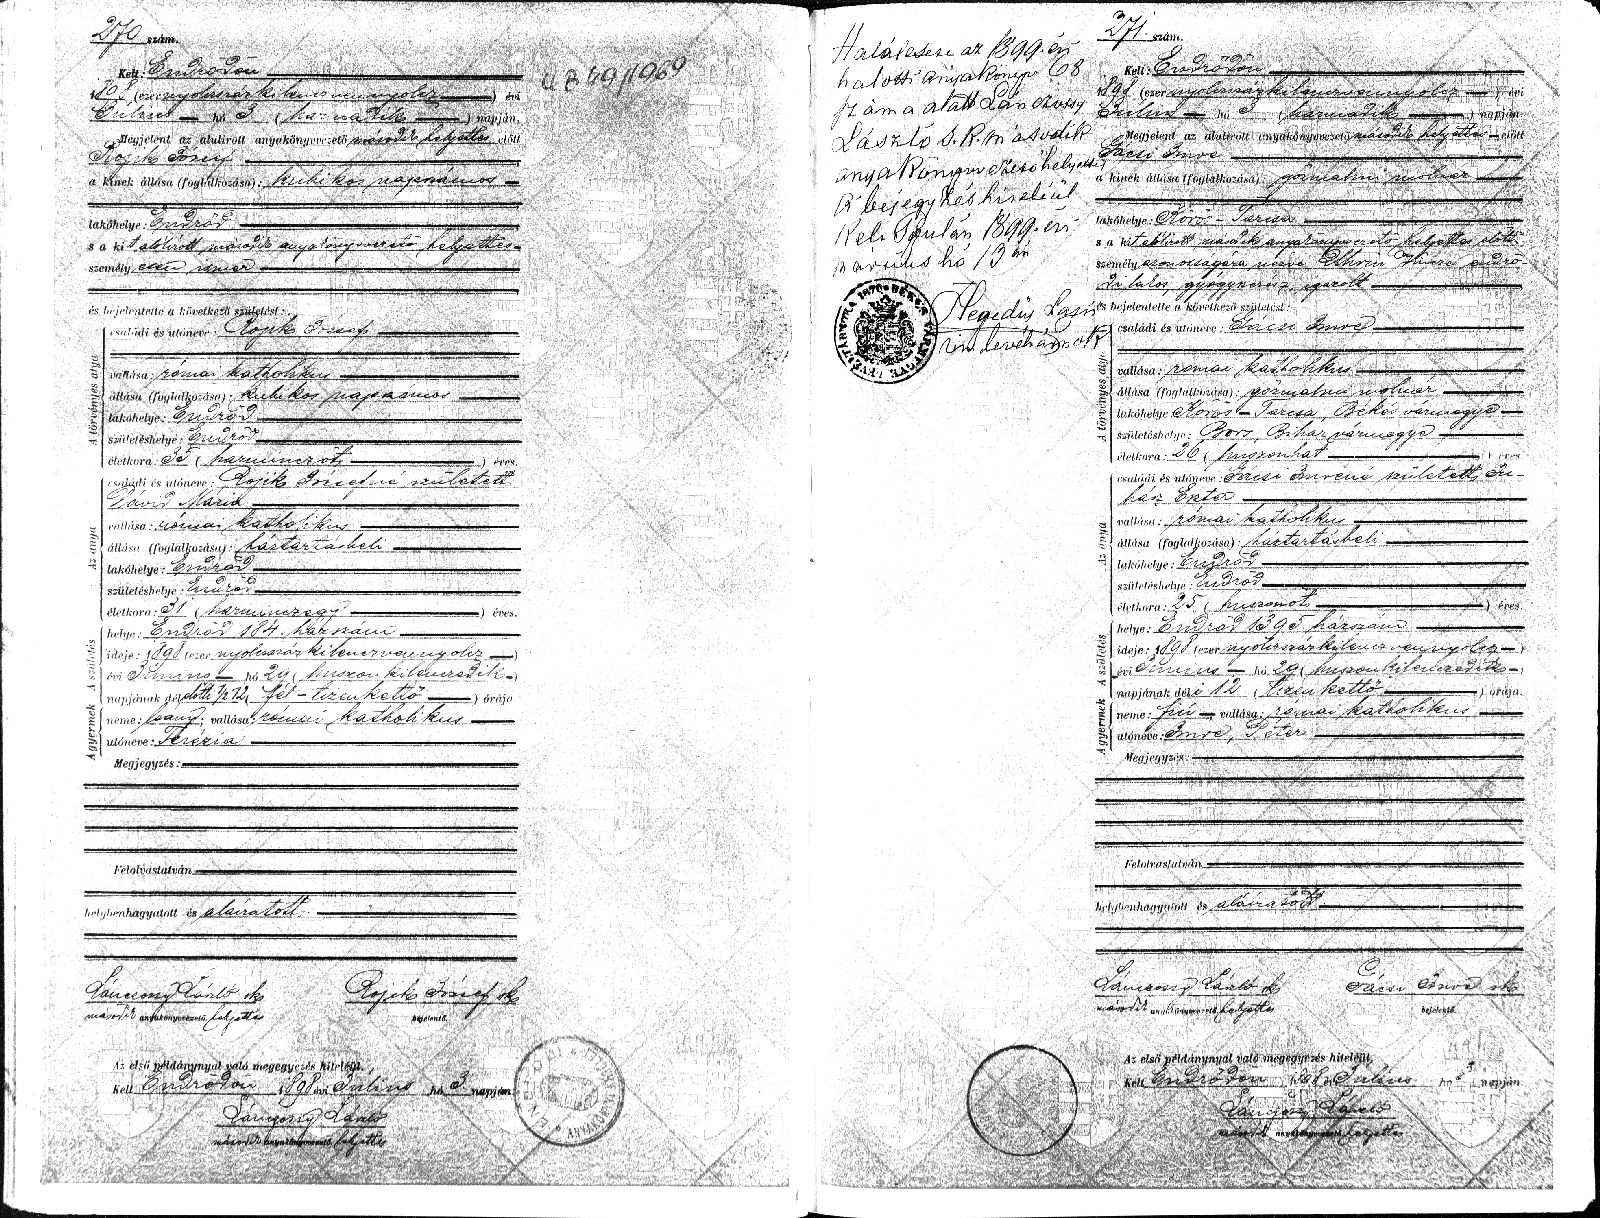 270 szám.
Kelt: Endrődön
1898 (ezer nyolcszázkilencvennyolcz) évi
Július hó 3 (harmadik) napján.
Megjelent az alulirott anyakönyvezető második helyettes előtt
Rojik József
a kinek állása (foglalkozása): kubikos napszámos
lakóhelye: Endrőd
s a kit alúlirott második anyakönyvvezető helyettes
személyesen ismer
és bejelentette a következő születést:
A törvényes atya
családi és utóneve: Rojik József
vallása: római katholikus
állása (foglalkozása): kubikos napszámos
lakóhelye: Endrőd
születéshelye: Endrőd
életkora: 35 (harminczöt) éves.
Az anya
családi és utóneve: Rojik Józsefné született
Dávid Mária
vallása: római katholikus
állása (foglalkozása): háztartásbeli
lakóhelye: Endrőd
születéshelye: Endrőd
életkora: 31 (harminczegy) éves.
A születés
helye: Endrőd 184. házszám
ideje: 1898 (ezer nyolcszázkilenczvennyolcz)
évi Június hó 29 (huszonkilenczedik)
napjának délelőtti 1/2 12 (fél-tizenkettő) órája
A gyermek
neme: leány; vallása: római katholikus
utóneve: Terézia
Megjegyzés:
Felolvastatván
helybenhagyatott és aláíratott.
Lánczossy László sk Rojik József sk
második anyakönyvvezető helyettes bejelentő.
Az első példánynyal való megegyezés hiteléül,
Kelt Endrődön 1898 évi Július hó 3 napján
Lánczossy László
második anyakönyvvezető helyettes
1969
Halálesete az 1899. évi
halotti anyakönyv 68
száma alatt Lánczossy
László s.k. második
anyakönyvvezető helyettes
A bejegyzés hiteléül
Kelt Gyulán 1899. évi
március hó 13 án
Hegedűs
levéltárnok
271. szám.
Kelt: Endrődön
1898 (ezer nyolcszázkilenczvennyolcz) évi
Július hó 3 (harmadik) napján
Megjelent az alulirott anyakönyvvezető második helyettes előtt
Gácsi Imre
a kinek állása (foglalkozása): gőzmalmi molnár
lakóhelye: Körös-Tarcsa
s a kit alúlirott második anyakönyvvezető helyettes előtt
személyazonosságára nézve Imre endrő-
di lakos gyógyszerész igazolt
és bejelentette a következő születést:
A törvényes atya
családi és utóneve: Gácsi Imre
vallása: római katholikus
állása (foglalkozása): gőzmalmi molnár
lakóhelye: Körös-Tarcsa, Békés vármegye
születéshelye: Bors, Bihar vármegye
életkora: 26 (huszonhat) éves
Az anya
családi és utóneve: Gácsi Imréné született Ju-
hász Eszter
vallása: római katholikus
állása (foglalkozása): háztartásbeli
lakóhelye: Endrőd
születéshelye: Endrőd
életkora: 25 (huszonöt) éves.
A születés
helye: Endrőd 1395 házszám
ideje: 1898 (ezer nyolcszázkilenczvennyolcz)
évi Június hó 29 (huszonkilenczedik)
napjának déli 12 (tizenkettő) órája.
A gyermek
neme: fiú vallása: római katholikus
utóneve: Imre, Péter
Megjegyzés:
Felolvastatván
helybenhagyatott és aláíratott
Lánczossy László sk Gácsi Imre sk
második anyakönyvvezető helyettes bejelentő.
Az első példánynyal való megegyezés hiteléül,
Kelt Endrődön 1898 évi Július hó 3 napján
Lánczossy László
második anyakönyvvezető helyettes